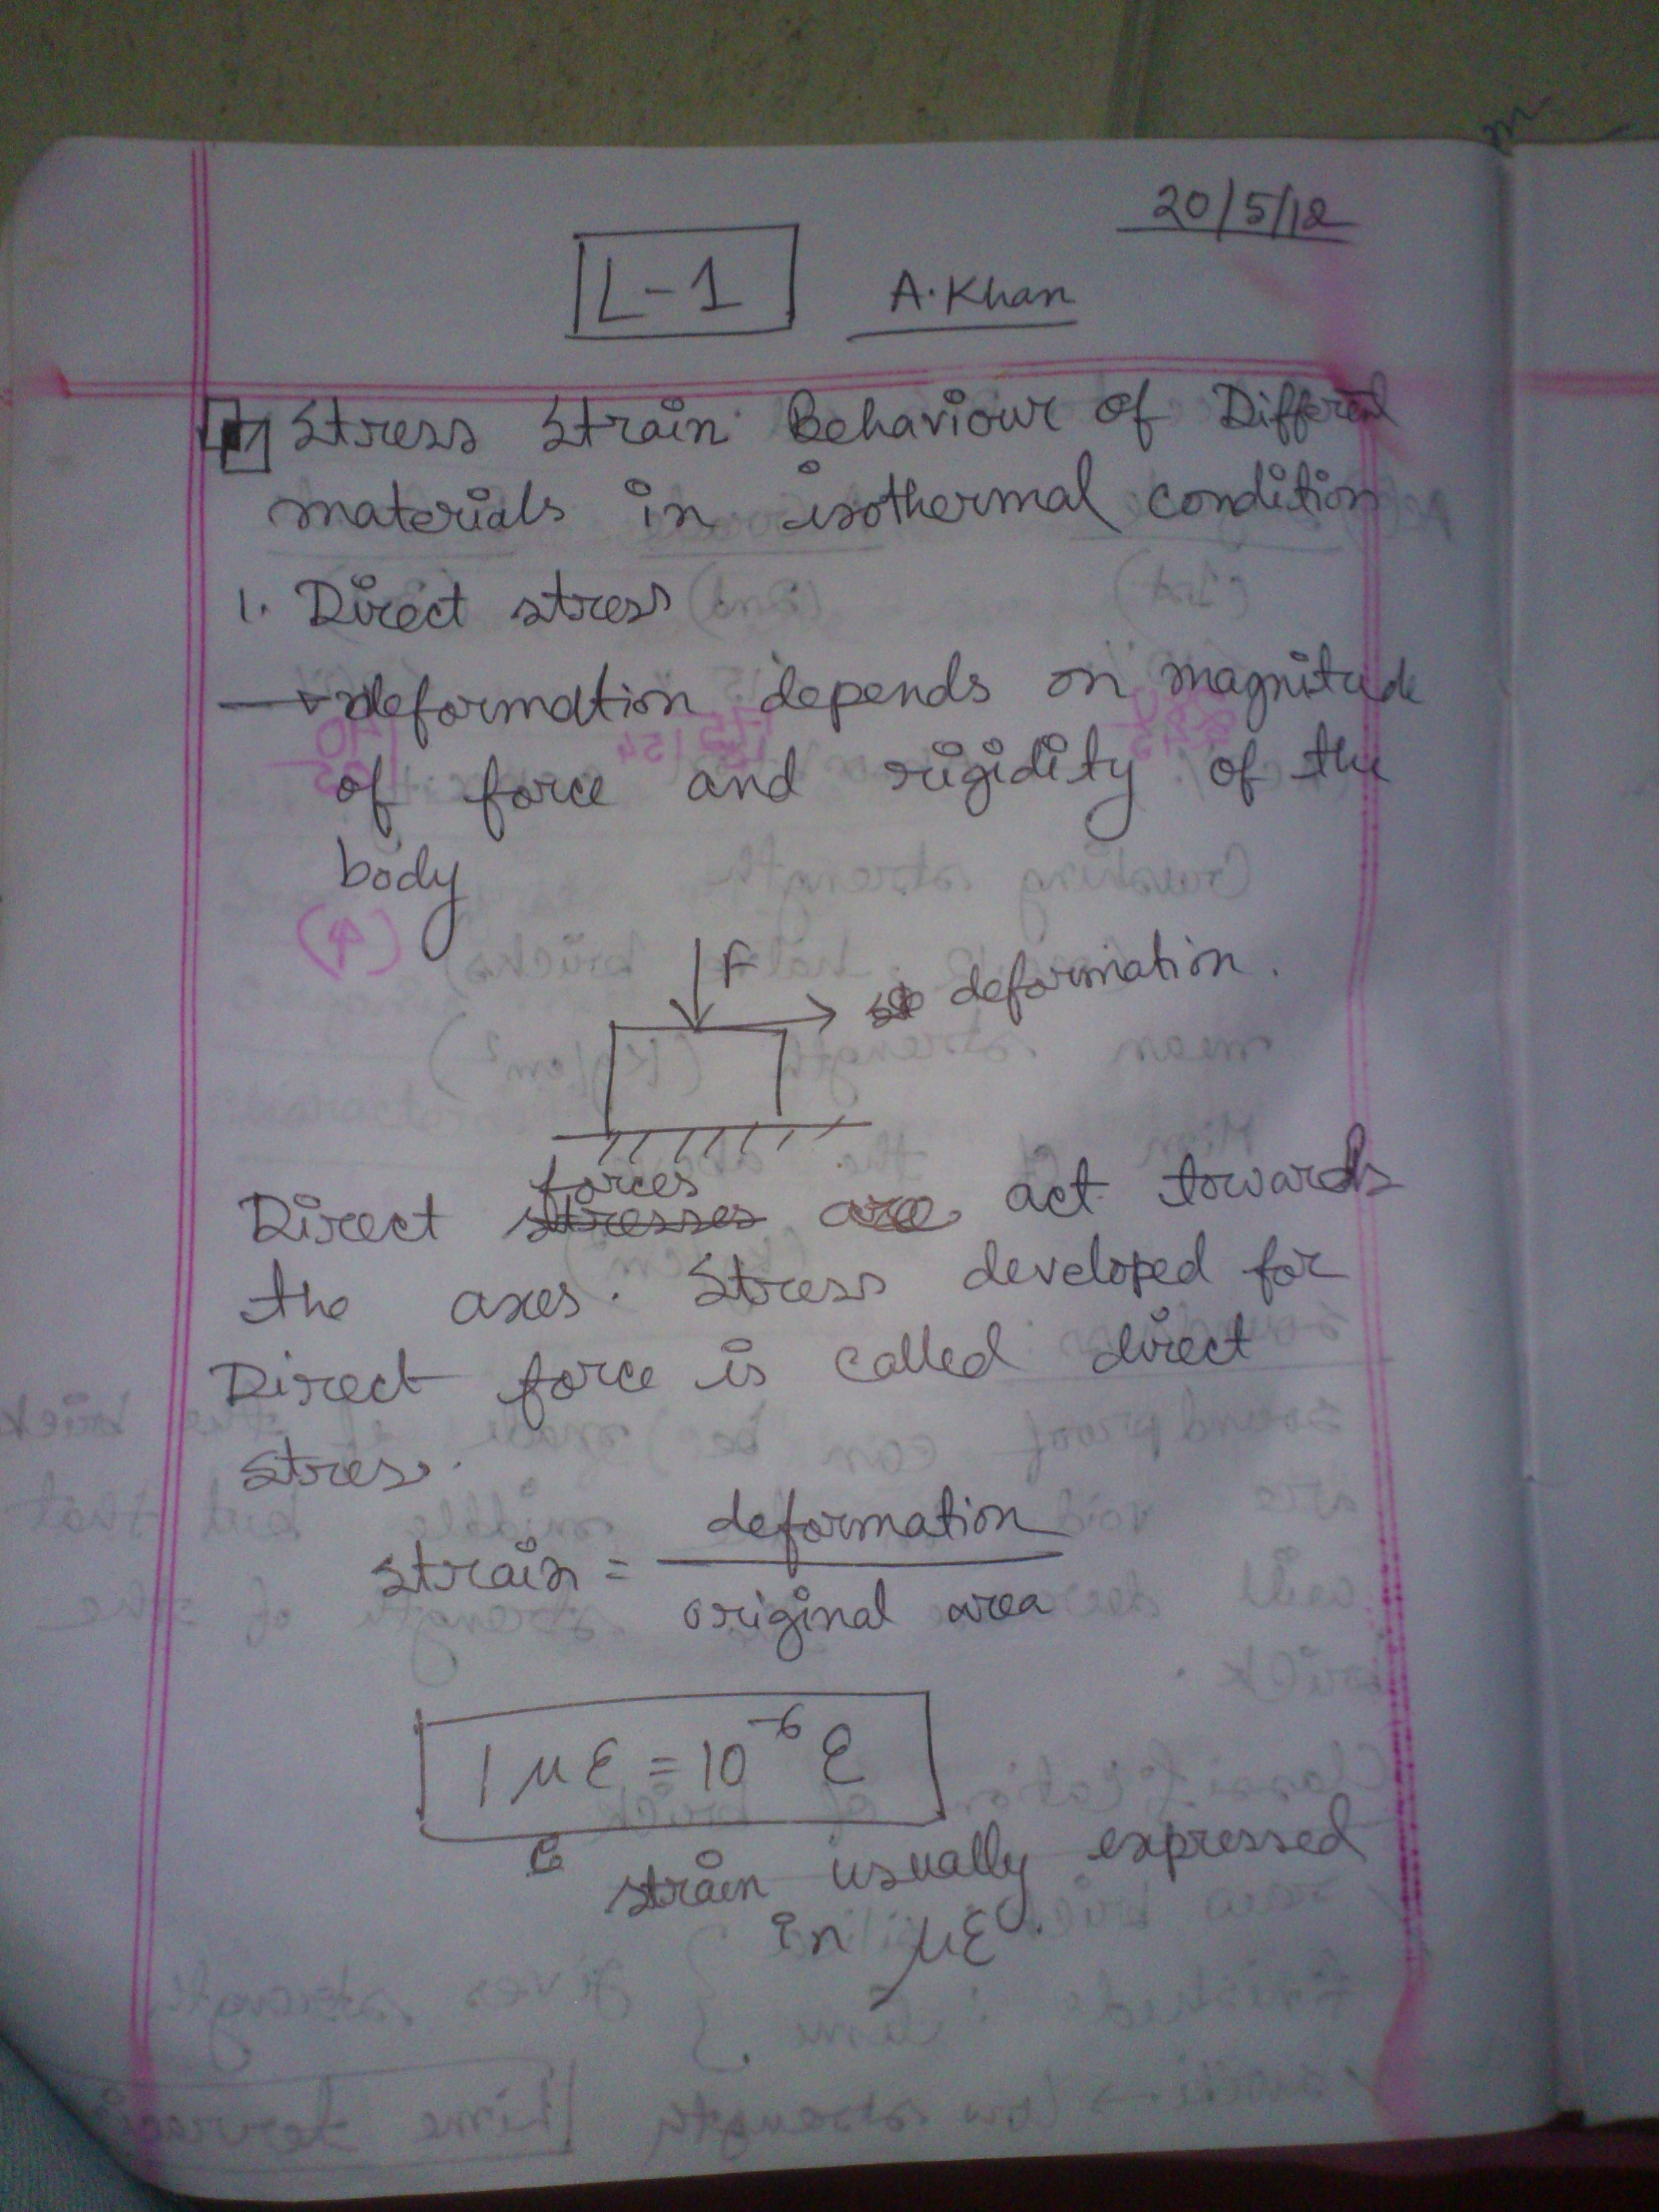 20/5/12
L-1 A.Khan
Stress Strain Behaviour of Different
materials in isothermal condition
1. Direct stress
→ deformation depends on magnitude
of force and rigidity of the
body
F
deformation.
forces
Direct stresses are act towards
the axes. Stress developed for
Direct force is called direct
stress.
strain = deformation
original area
1 με = 10⁻⁶ ε
strain usually expressed
in με.